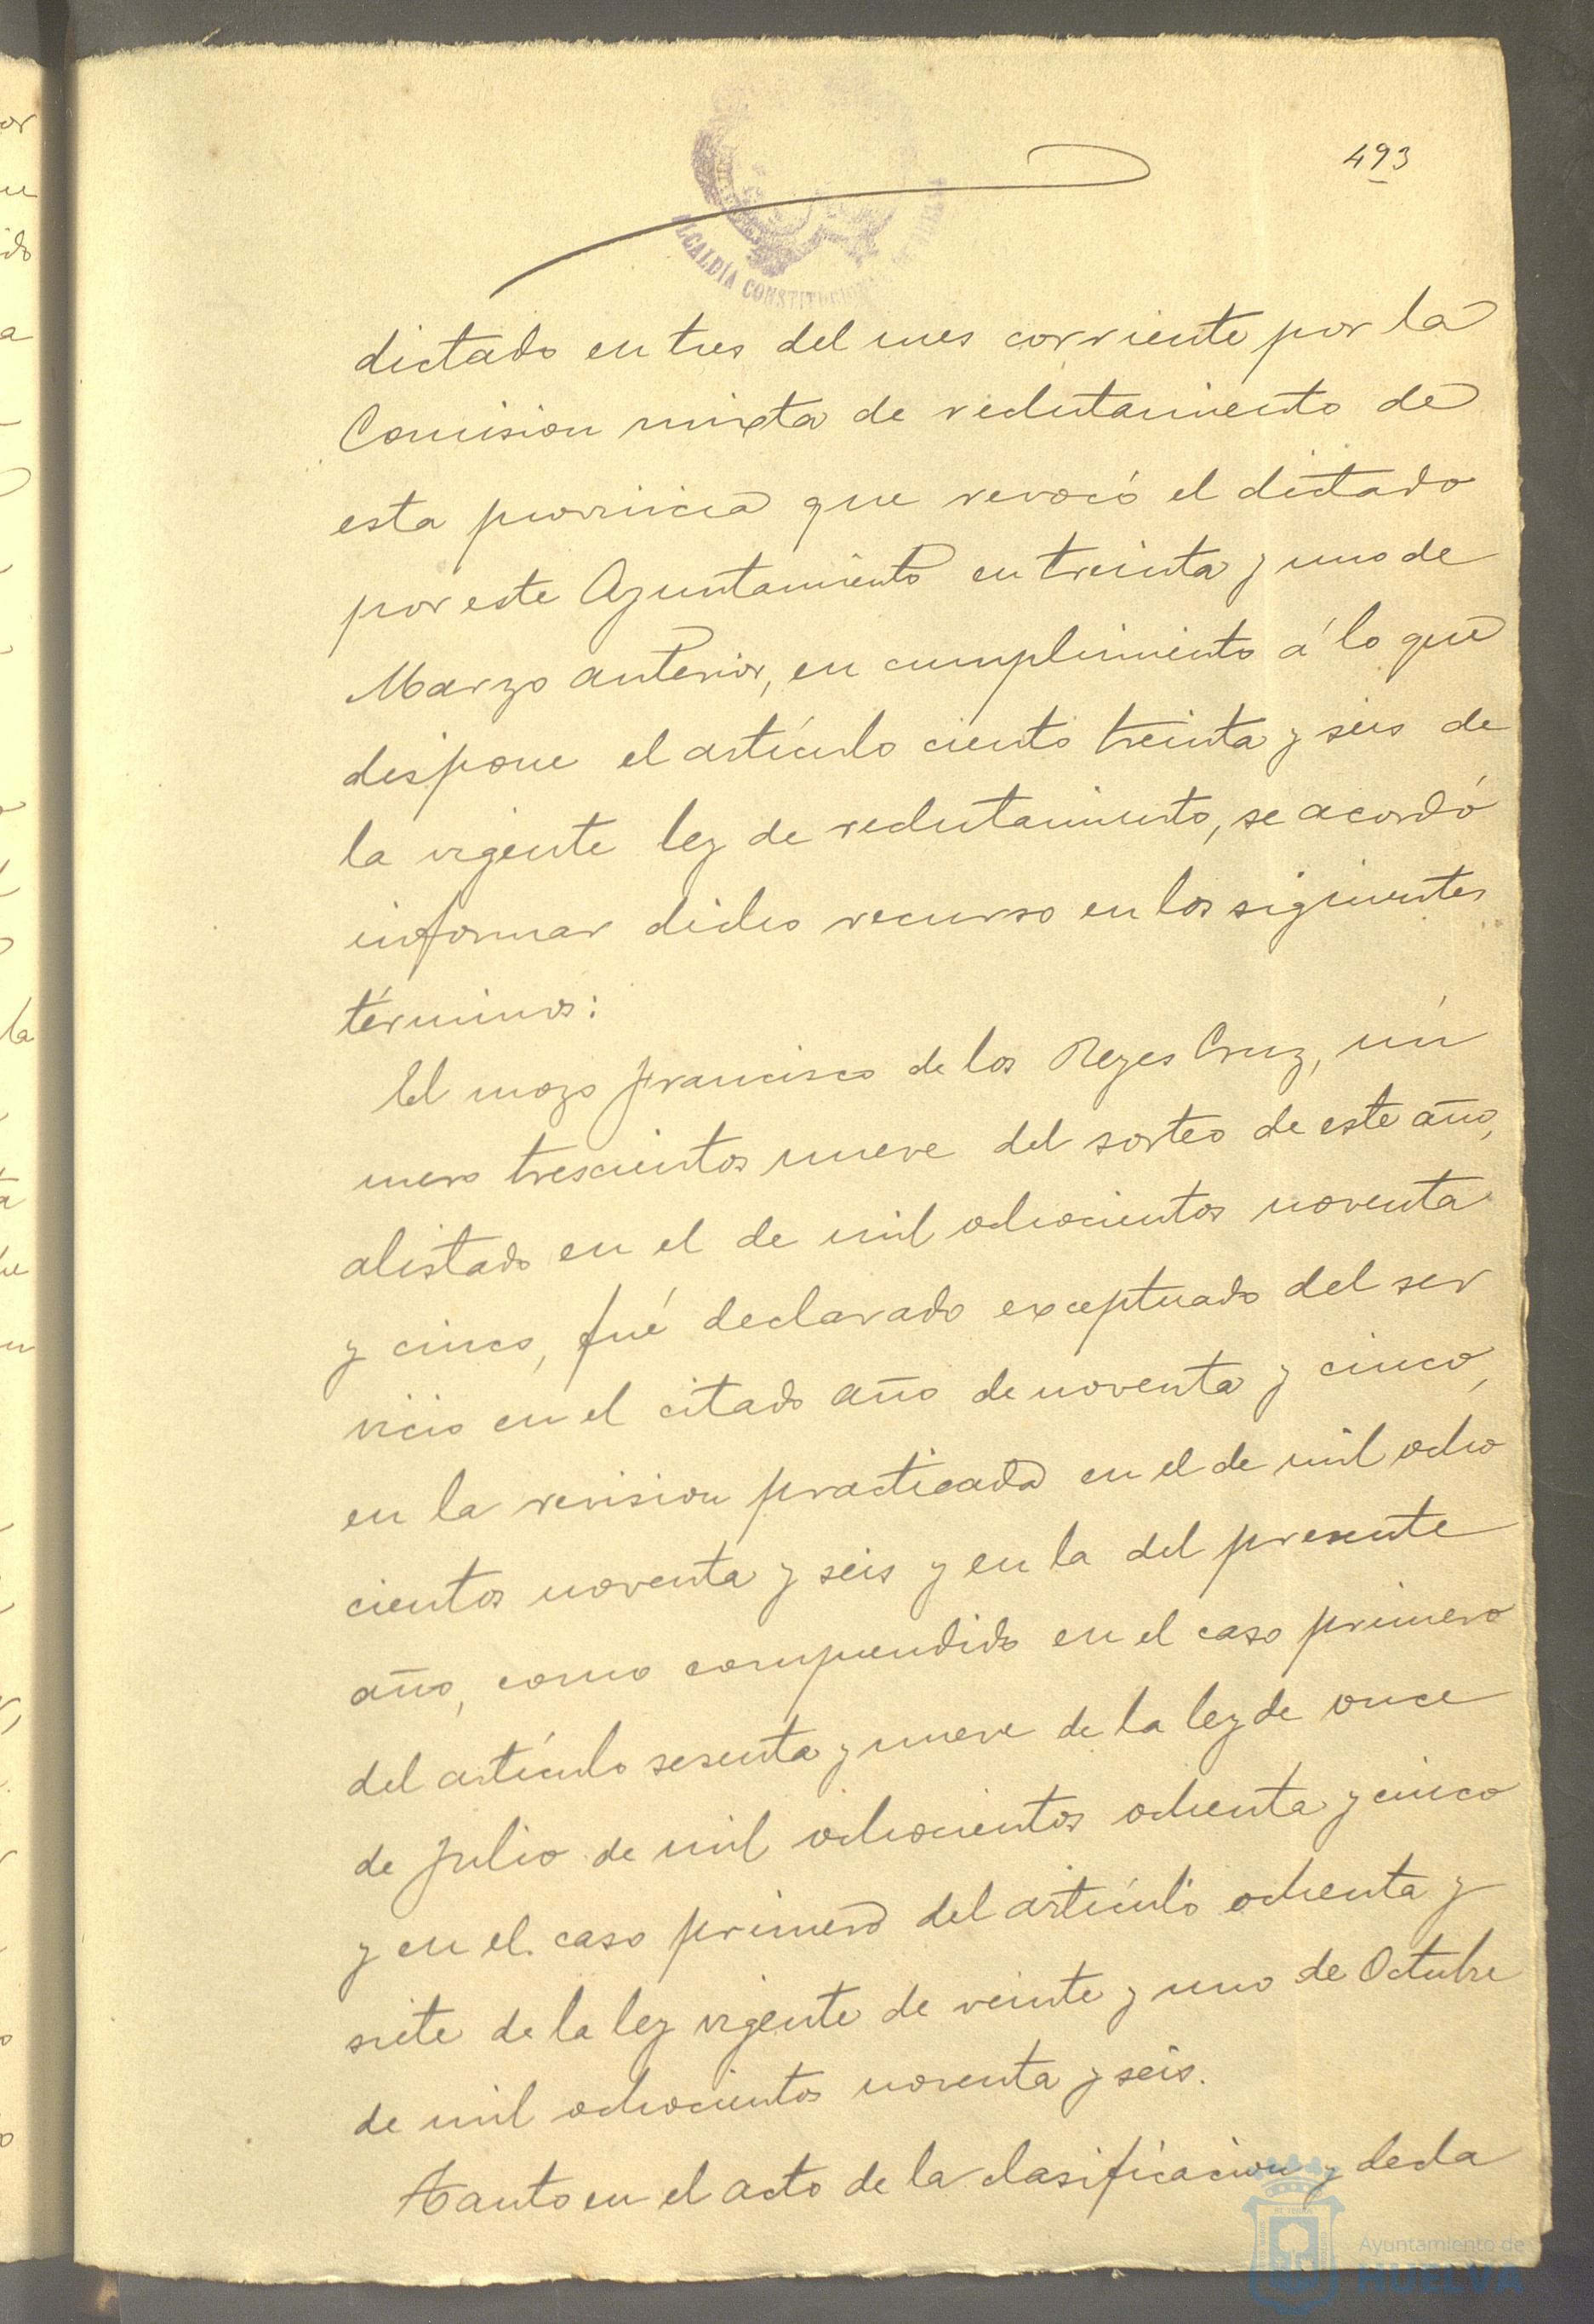 493
ALCALDÍA CONSTITUCIONAL
dictado en tres del mes corriente por la
Comision mixta de reclutamiento de
esta provincia que revocó el dictado
por este Ayuntamiento en treinta y uno de
Marzo anterior, en cumplimiento á lo que
dispone el artículo ciento treinta y seis de
la vigente ley de reclutamiento, se acordó
informar dicho recurso en los siguientes
términos:
El mozo Francisco de los Reyes Cruz, nú
mero trescientos nueve del sorteo de este año,
alistado en el de mil ochocientos noventa
y cinco, fué declarado exceptuado del ser
vicio en el citado año de noventa y cinco,
en la revision practicada en el de mil ocho
cientos noventa y seis y en la del presente
año, como comprendido en el caso primero
del artículo sesenta y nueve de la ley de once
de Julio de mil ochocientos ochenta y cinco
y en el caso primero del artículo ochenta y
siete de la ley vigente de veinte y uno de Octubre
de mil ochocientos noventa y seis.
Tanto en el acto de la clasificacion y decla
Ayuntamiento de
HUELVA